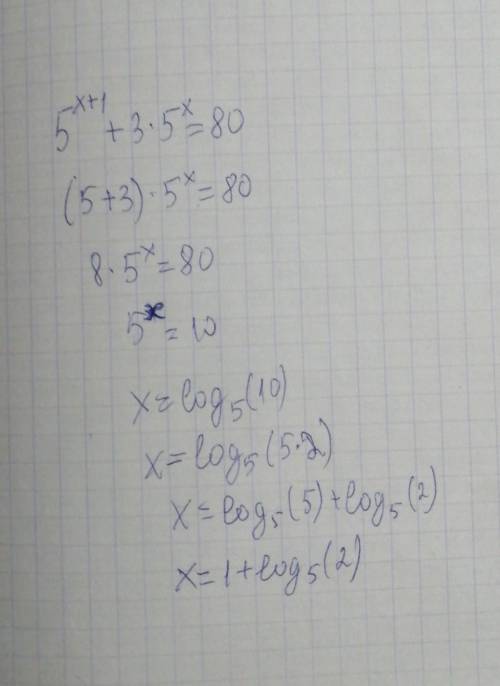 5^{x+1} + 3 · 5^x = 80
(5+3) · 5^x = 80
8 · 5^x = 80
5^x = 10
x = log_5(10)
x = log_5(5·2)
x = log_5(5) + log_5(2)
x = 1 + log_5(2)